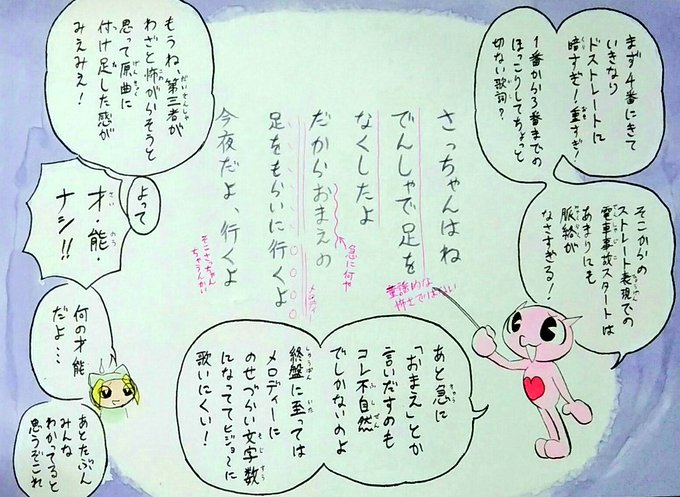 まず4番にきて
いきなり
ドストレートに
暗すぎ!重すぎ!
1番から3番までの
ほっこりしてちょっと
切ない歌詞?
そこからの
ストレート表現での
電車事故スタートは
あまりにも
脈絡が
なさすぎる!
さっちゃんはね
でんしゃで足を
なくしたよ
だからおまえの
足をもらいに行くよ
今夜だよ、行くよ
童謡的な
怖さではない
急に何や
メロディー
そこさっちゃん
ちゃうんかい
あと急に
「おまえ」とか
言いだすのも
コレ不自然
でしかないのよ
終盤に至っては
メロディーに
のせづらい文字数
になっててビジョ〜に
歌いにくい!
もうね、第三者が
わざと怖がらそうと
思って原曲に
付け足した感が
みえみえ!
よって
才・能・
ナシ!!
何の才能
だよ…
あとたぶん
みんな
わかってると
思うぞこれ